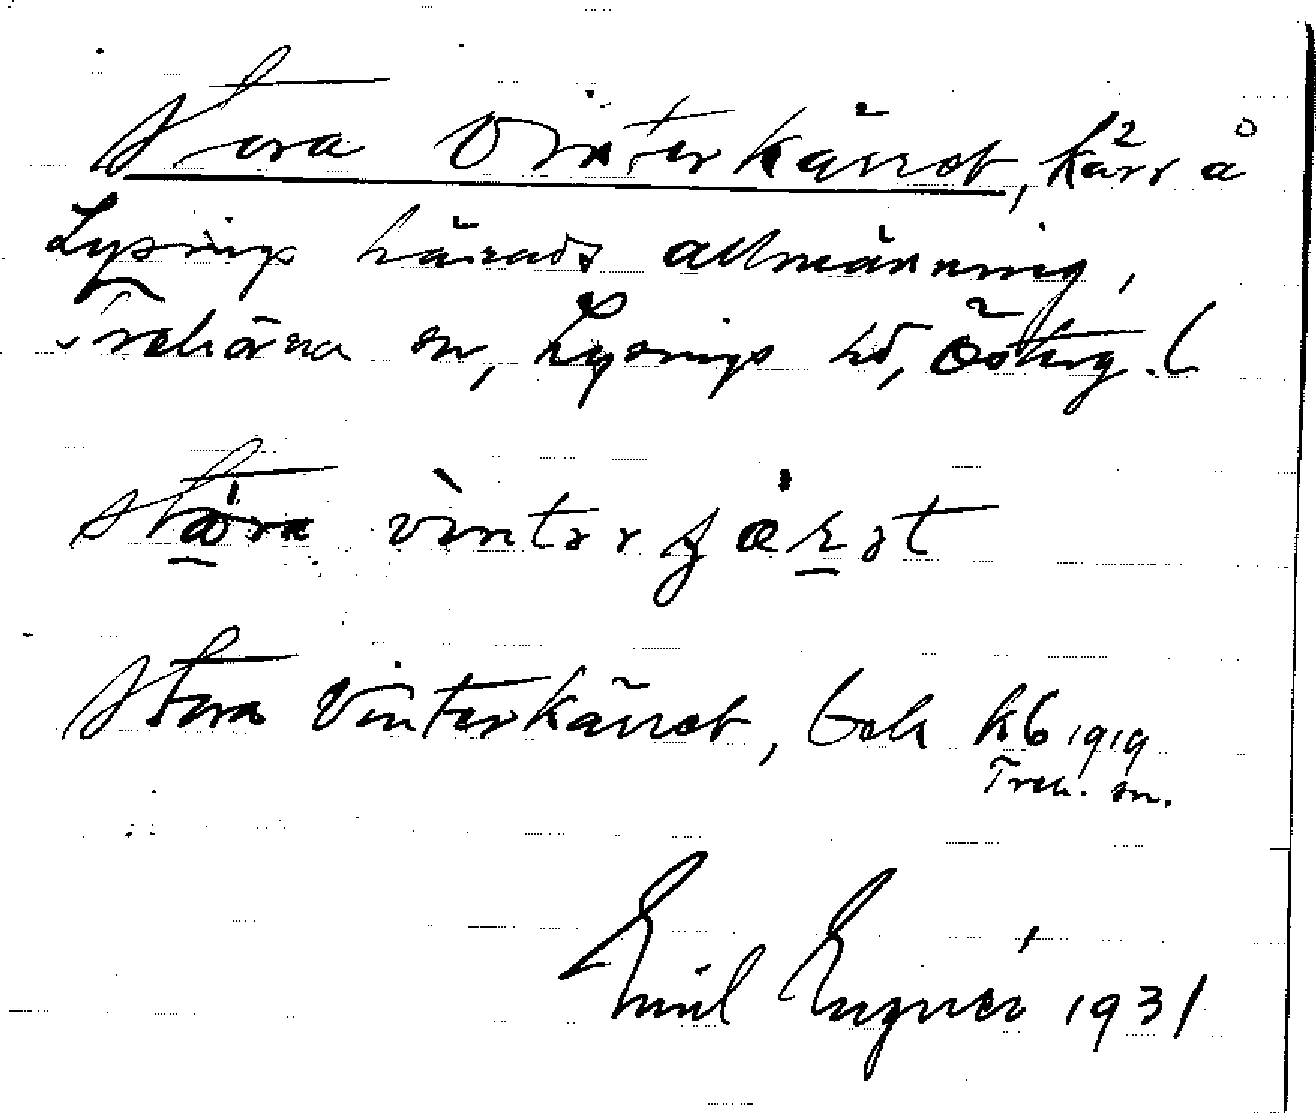 Stora Vinterkärret, kärr å
Lysings härads allmänning,
Trehörna sn, Lysings hd, Österg. (
stora vìnterȷärət
Stora Vinterkärret, Gek kb 1919
Treh. sn.
Emil Engnér 1931